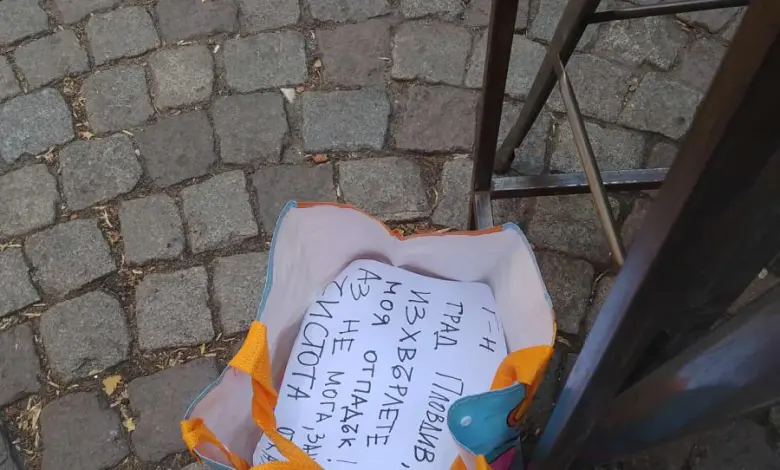 Г-Н
ГРАД ПЛОВДИВ,
ИЗХВЪРЛЕТЕ
МОЯ ОТПАДЪК!
АЗ НЕ МОГА, ЗА
ЧИСТОТА